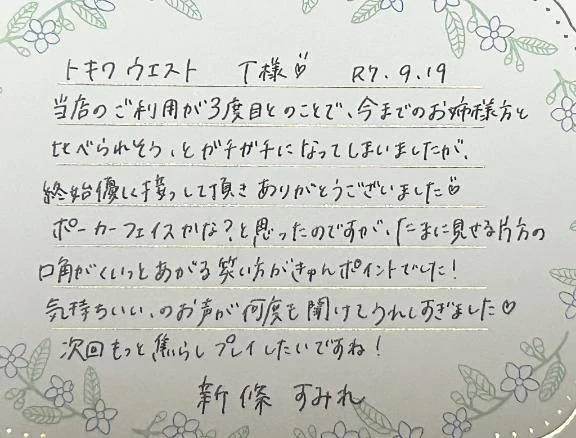 トキワ ウエスト T様♡ R7.9.19
当店のご利用が3度目とのことで、今までのお姉様方と
比べられそう、とガチガチになってしまいましたが、
終始優しく接っして頂きありがとうございました♡
ポーカーフェイスかな?と思ったのですが、たまに見せる片方の
口角がくいっとあがる笑い方がきゅんポイントでした!
気持ちいい、のお声が何度も聞けてうれしすぎました♡
次回もっと焦らしプレイしたいですね!
新條 すみれ